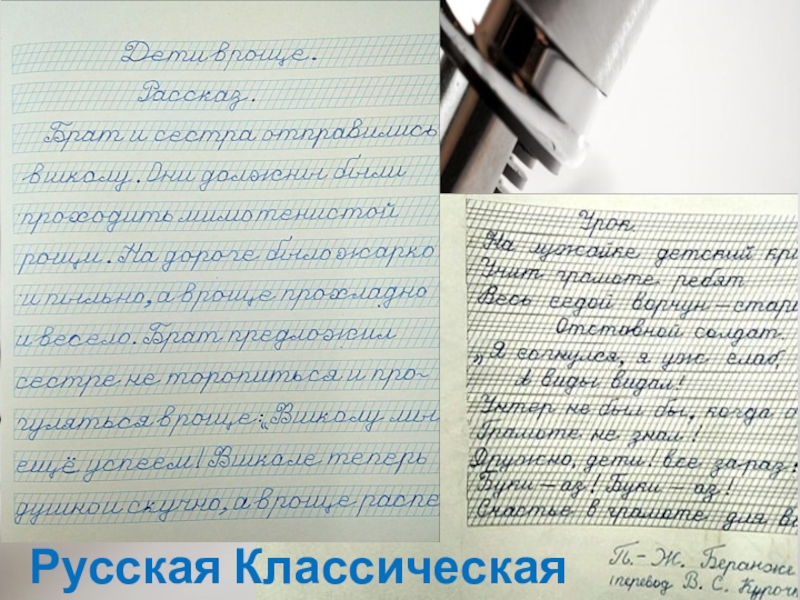 Дети в роще.
Рассказ.
Брат и сестра отправились
в школу. Они должны были
проходить мимо тенистой
рощи. На дороге было жарко
и пыльно, а в роще прохладно
и весело. Брат предложил
сестре не торопиться и про-
гуляться в роще: „В школу мы
ещё успеем! В школе теперь
душно и скучно, а в роще распе
Урок.
На лужайке детский кри
Учит грамоте ребят
Весь седой ворчун – стари
Отставной солдат.
„Я согнулся, я уж слаб,
А виды видал!
Унтер не был бы, когда
Грамоте не знал!
Дружно, дети! все зараз:
Буки – аз! Буки – аз!
Счастье в грамоте для ва
П.-Ж. Беранже
(перевод В. С. Курочк
Русская Классическая